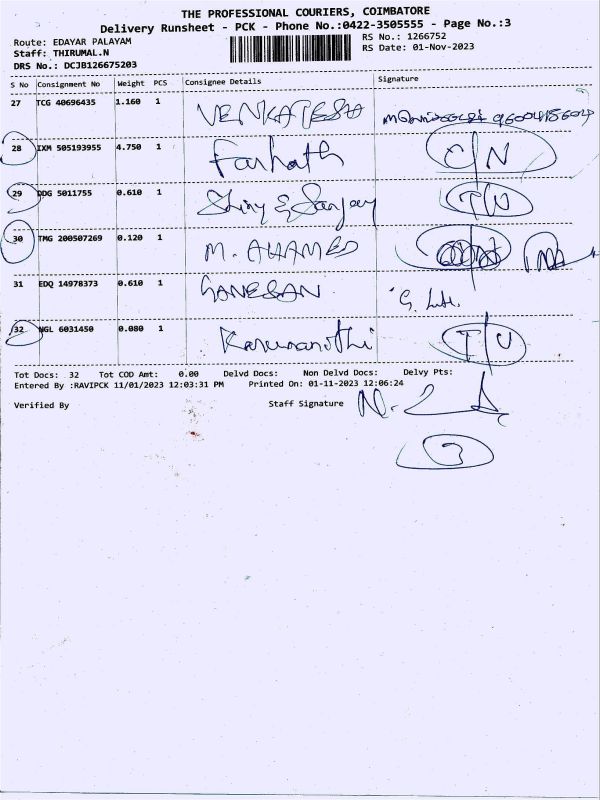 THE PROFESSIONAL COURIERS, COIMBATORE
Delivery Runsheet - PCK - Phone No.:0422-3505555 - Page No.:3
Route: EDAYAR PALAYAM RS No.: 1266752
Staff: THIRUMAL.N RS Date: 01-Nov-2023
DRS No.: DCJB126675203
S No Consignment No Weight PCS Consignee Details Signature
27 TCG 40696435 1.160 1 VENKATESH
28 IXM 505193955 4.750 1 Farhath C/N
29 DDG 5011755 0.610 1 Shiny & Sanjeev
30 TMG 200507269 0.120 1 M. AHAMED
31 EDQ 14978373 0.610 1 GANESAN
32 NGL 6031450 0.080 1 Karunanithi
Tot Docs: 32 Tot COD Amt: 0.00 Delvd Docs: Non Delvd Docs: Delvy Pts:
Entered By :RAVIPCK 11/01/2023 12:03:31 PM Printed On: 01-11-2023 12:06:24
Verified By Staff Signature